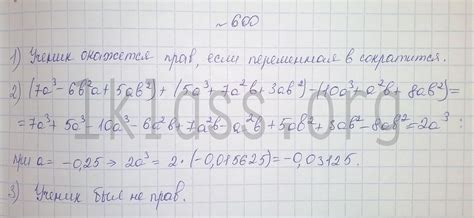 ~600
1) Ученик окажется прав, если переменная в сократится.
2) (7a³-6b²a+5ab²)+(5a³+7a²b+3ab²)-(10a³+a²b+8ab²)=
=7a³+5a³-10a³-6a²b+7a²b-a²b+5ab²+3ab²-8ab²=2a³ :
при a=-0,25 → 2a³ = 2·(-0,015625)=-0,03125.
3) Ученик был не прав.
1klass.org